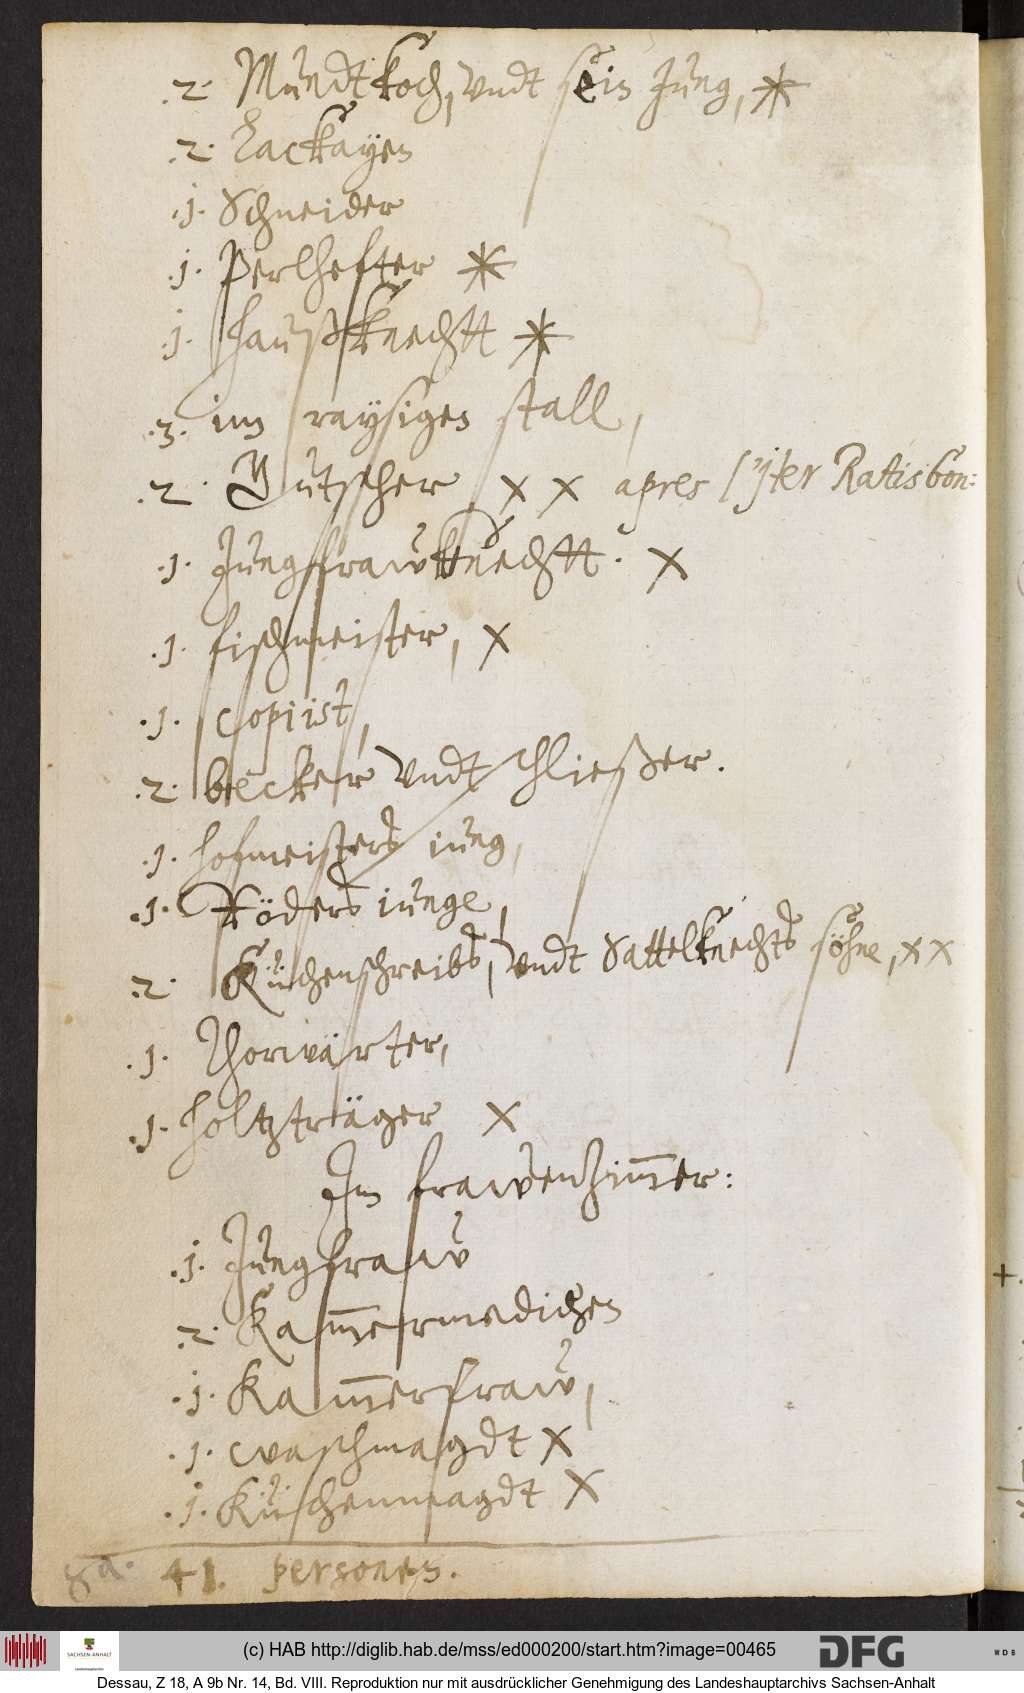 .2. Mundtkoch, vndt sein Jung, *
.2. Lackayen
.1. Schneider
.1. Perlhefter *
.1. haußknechtt *
.3. im raysigen stall,
.2. Kutscher x x apres l'yter Ratisbon:
.1. Jungfrawknechtt. x
.1. fischmeister, x
.1. copiist,
.2. becker vndt schließer.
.1. hofmeisters iung,
.1. Röders iunge,
.2. Küchenschreibs, vndt Sattelknechts söhne, x x
.1. Thorwärter,
.1. holtzträger x
Im frawenzimmer:
.1. Jungfraw
.2. Kammermedichen
.1. Kammerfraw,
.1. waschmagdt x
.1. Küchenmagdt x
41. personen.
(c) HAB http://diglib.hab.de/mss/ed000200/start.htm?image=00465
SACHSEN-ANHALT
Landeshauptarchiv
DFG
WDB
Dessau, Z 18, A 9b Nr. 14, Bd. VIII. Reproduktion nur mit ausdrücklicher Genehmigung des Landeshauptarchivs Sachsen-Anhalt